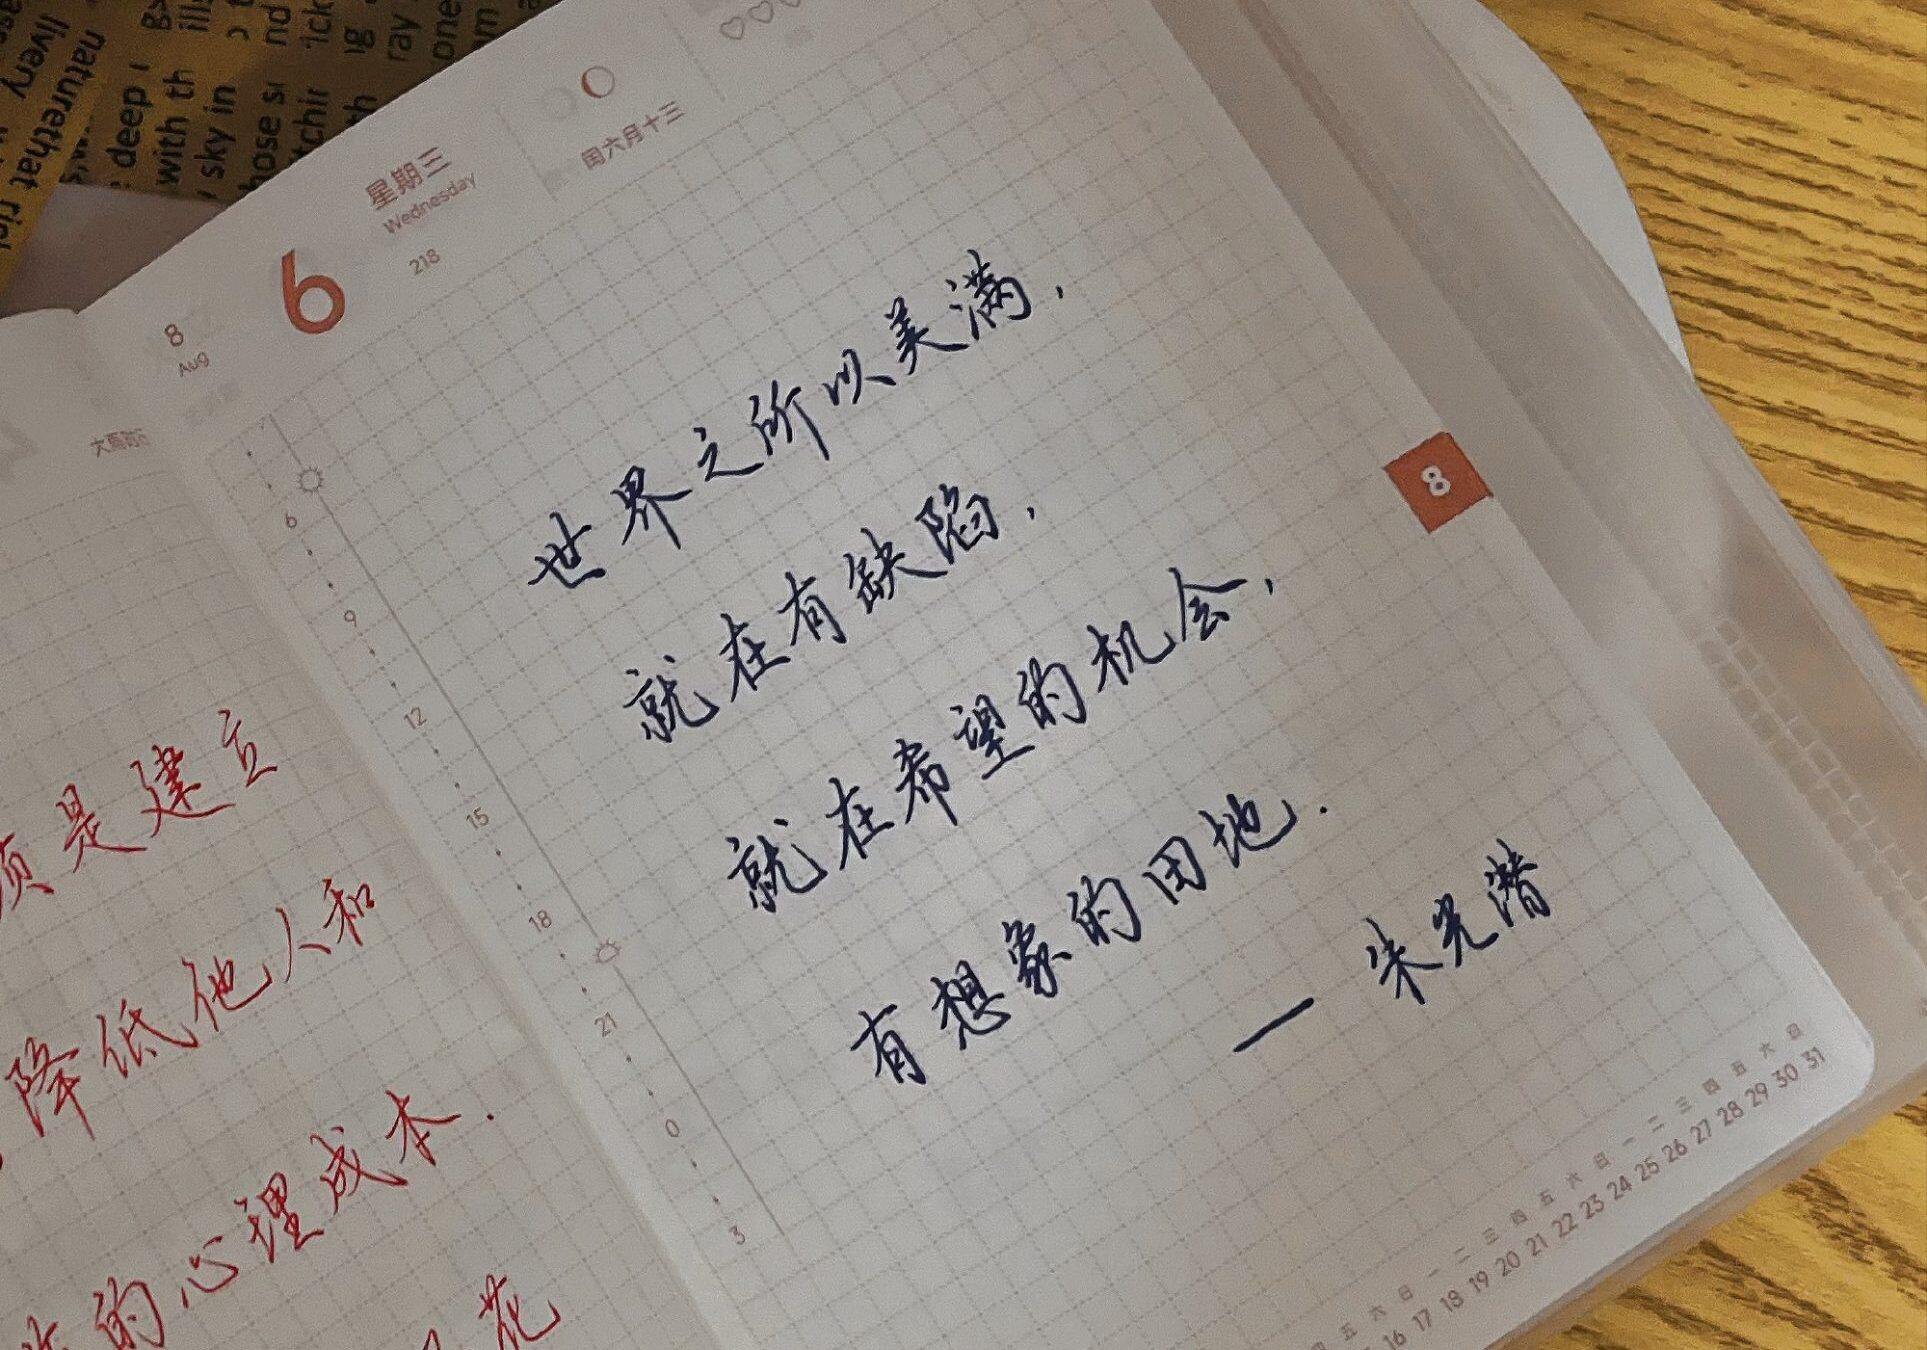 8
Aug
6
星期三
Wednesday
218
闰六月十三
世界之所以美满，
就在有缺陷，
就在希望的机会，
有想象的田地.
— 朱光潜
8
6
9
12
15
18
21
0
3
是建立
降低他人和
的心理成本.
花
四 五 六 日 一 二 三 四 五 六 日 一 二 三 四 五 六 日
16 17 18 19 20 21 22 23 24 25 26 27 28 29 30 31
naturethat
livery
deep
with th
sky in
hose